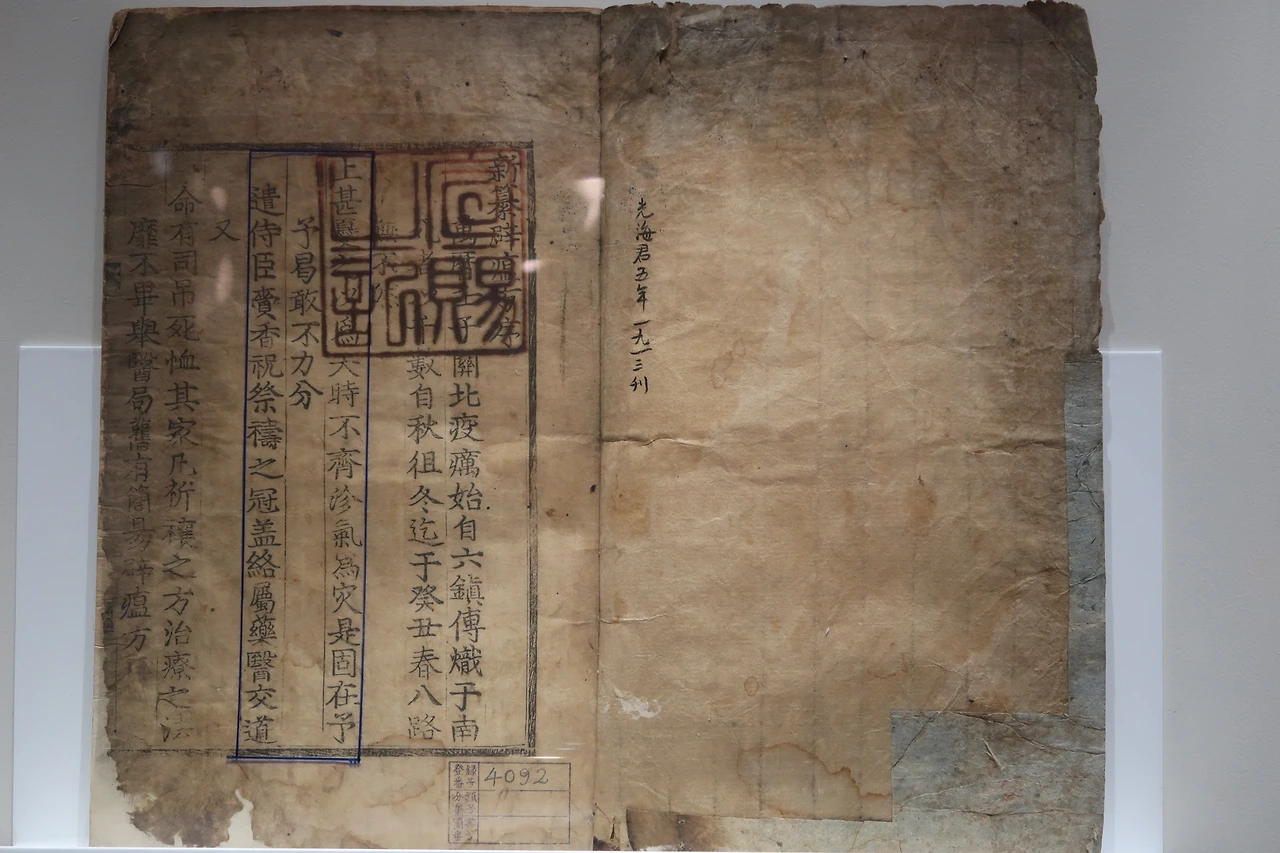 光海君五年 一九一三刊
新纂辟瘟方序
關北疫癘始自六鎮傳熾于南
數自秋徂冬迄于癸丑春八路
無不
上甚 天時不齊沴氣為灾是固在予
予曷敢不力分
遣侍臣賫香祝祭禱之冠盖絡屬藥醫交道
又
命有司吊死恤其家凡祈禳之方治療之法
靡不畢舉醫局舊有簡易辟瘟方
宣賜之記
4092